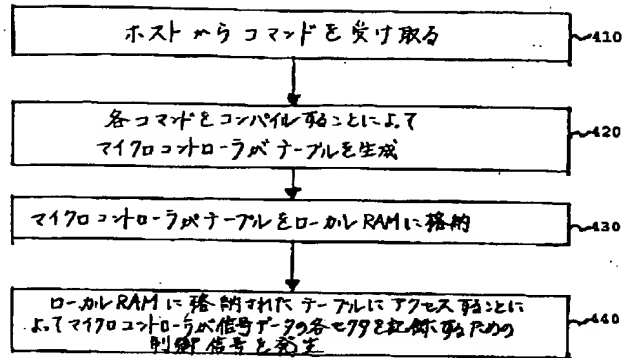 ホストからコマンドを受け取る
410
各コマンドをコンパイルすることによって
マイクロコントローラがテーブルを生成
420
マイクロコントローラがテーブルをローカルRAMに格納
430
ローカルRAMに格納されたテーブルにアクセスすることに
よってマイクロコントローラが信号データの各セクタを記録するための
制御信号を発生
440